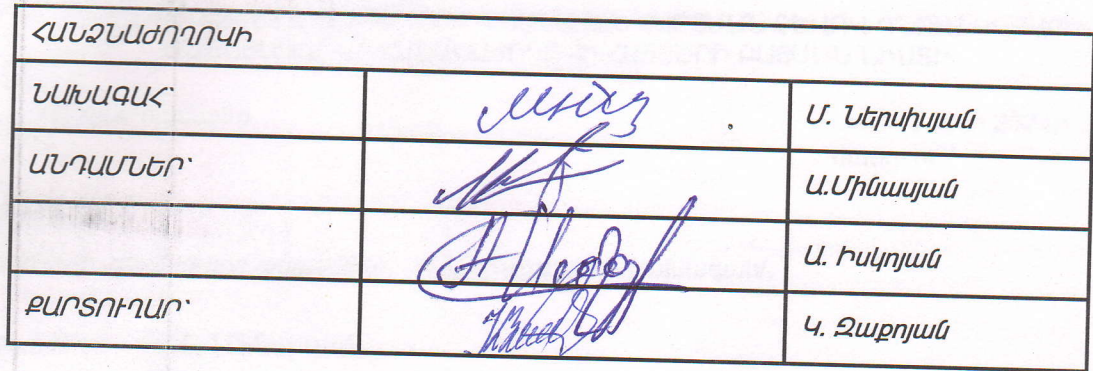 ՀԱՆՁՆԱԺՈՂՈՎԻ
ՆԱԽԱԳԱՀ՝ Մ. Ներսիսյան
ԱՆԴԱՄՆԵՐ՝ Ա.Մինասյան
Ա. Իսկոյան
ՔԱՐՏՈՒՂԱՐ՝ Կ. Զաքոյան